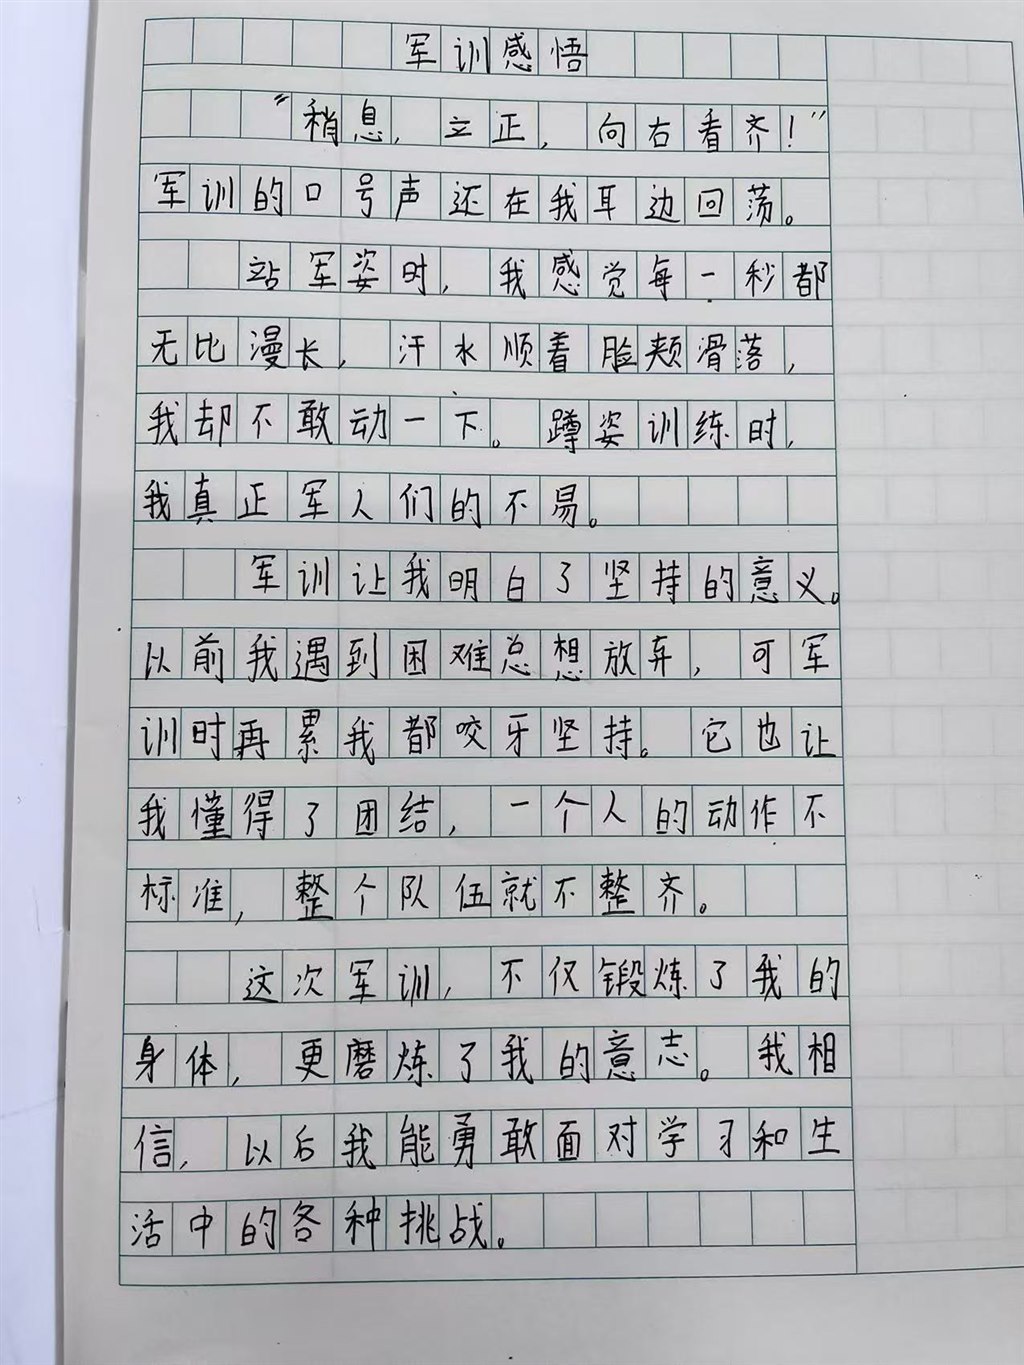 军训感悟
“稍息，立正，向右看齐！”
军训的口号声还在我耳边回荡。
站军姿时，我感觉每一秒都
无比漫长，汗水顺着脸颊滑落，
我却不敢动一下。蹲姿训练时，
我真正军人们的不易。
军训让我明白了坚持的意义。
以前我遇到困难总想放弃，可军
训时再累我都咬牙坚持。它也让
我懂得了团结，一个人的动作不
标准，整个队伍就不整齐。
这次军训，不仅锻炼了我的
身体，更磨炼了我的意志。我相
信，以后我能勇敢面对学习和生
活中的各种挑战。